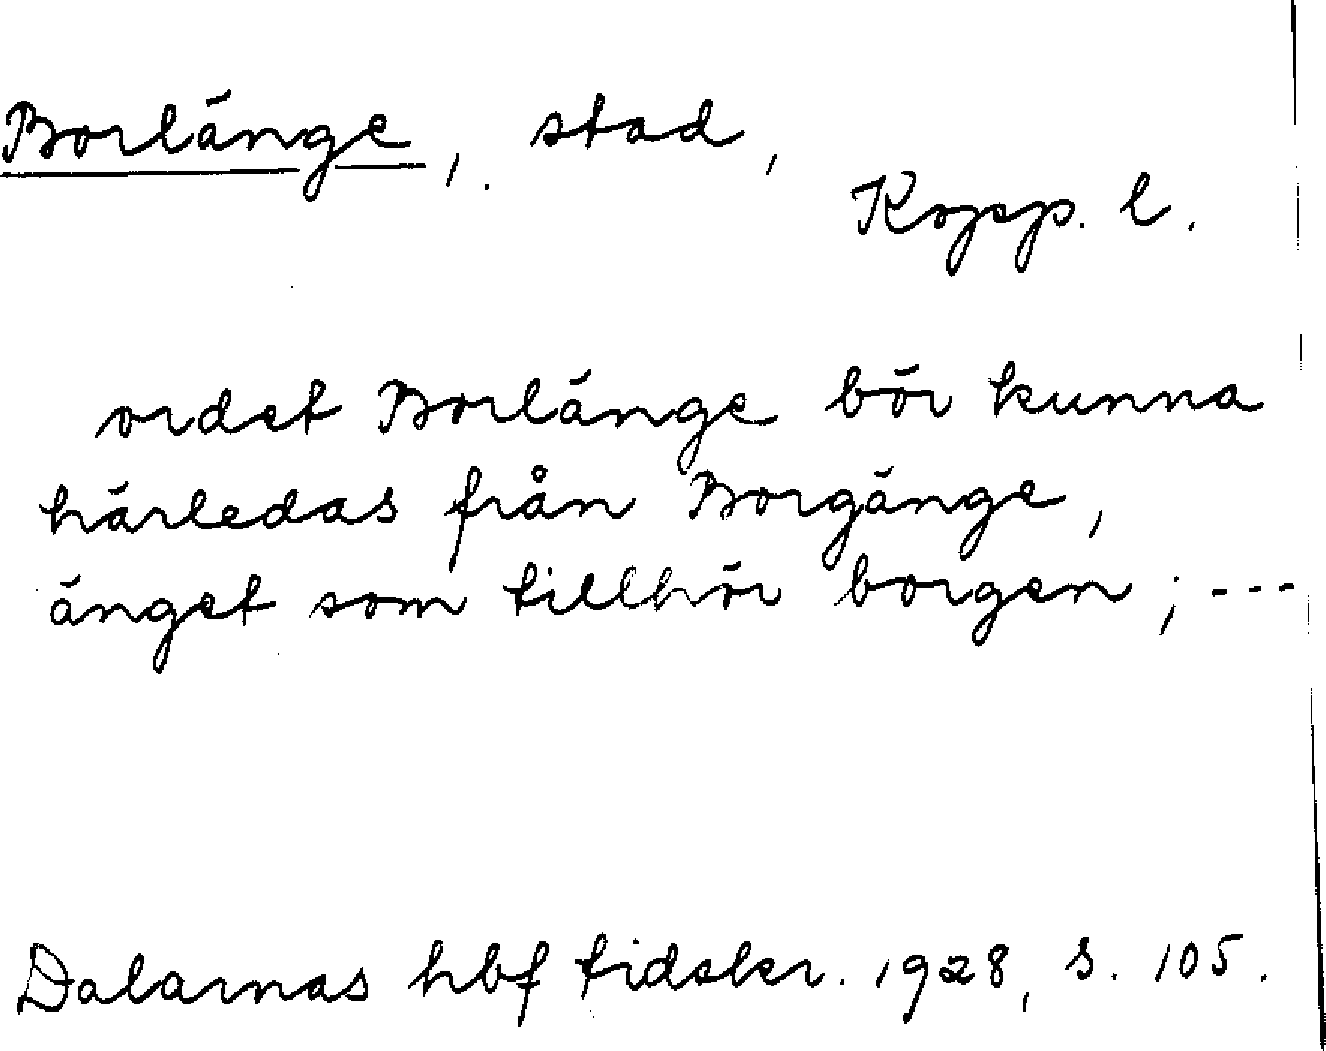 Borlänge, stad,
Kopp. l.
ordet Borlänge bör kunna
härledas från Borgänge,
änget som tillhör borgen; ---
Dalarnas hbf tidskr. 1928, s. 105.